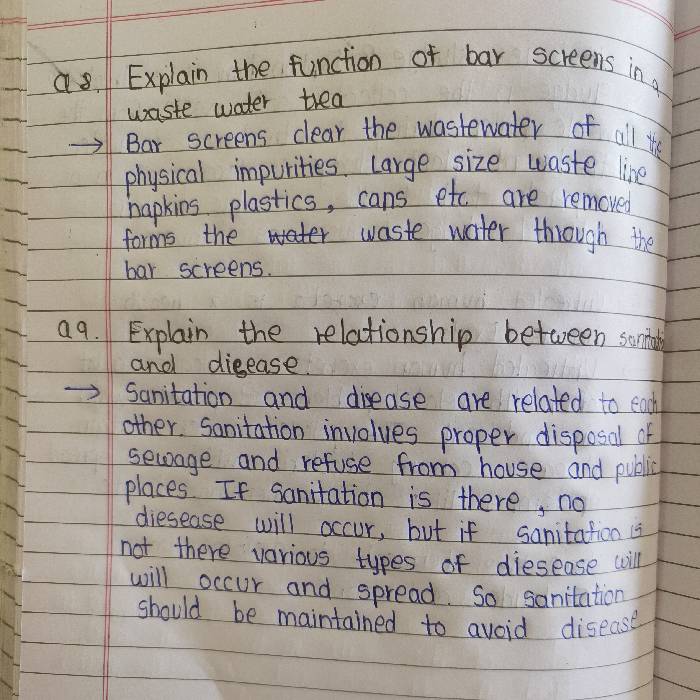 Q 8. Explain the function of bar screens in a
waste water trea
→ Bar screens clear the wastewater of all the
physical impurities. Large size waste like
napkins, plastics, cans etc. are removed
forms the water waste water through the
bar screens.
Q 9. Explain the relationship between sanitation
and disease.
→ Sanitation and disease are related to each
other. Sanitation involves proper disposal of
sewage and refuse from house and public
places. If sanitation is there, no
diesease will occur, but if sanitation is
not there various types of diesease will
will occur and spread. So sanitation
should be maintained to avoid disease